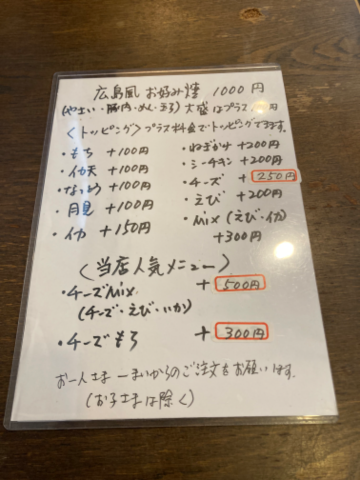 広島風 お好み焼 1000円
(やさい・豚肉・めん・玉子) 大盛はプラス 円
〈トッピング〉プラス料金でトッピングできます。
・もち +100円
・イカ天 +100円
・なっとう +100円
・月見 +100円
・イカ +150円
・ねぎかけ +200円
・シーチキン +200円
・チーズ + 250円
・えび +200円
・Mix (えび・イカ)
+300円
〈当店人気メニュー〉
・チーズMix + 500円
(チーズ・えび・いか)
・チーズもち + 300円
お一人さま 一まいからのご注文をお願いします。
(お子さまは除く)